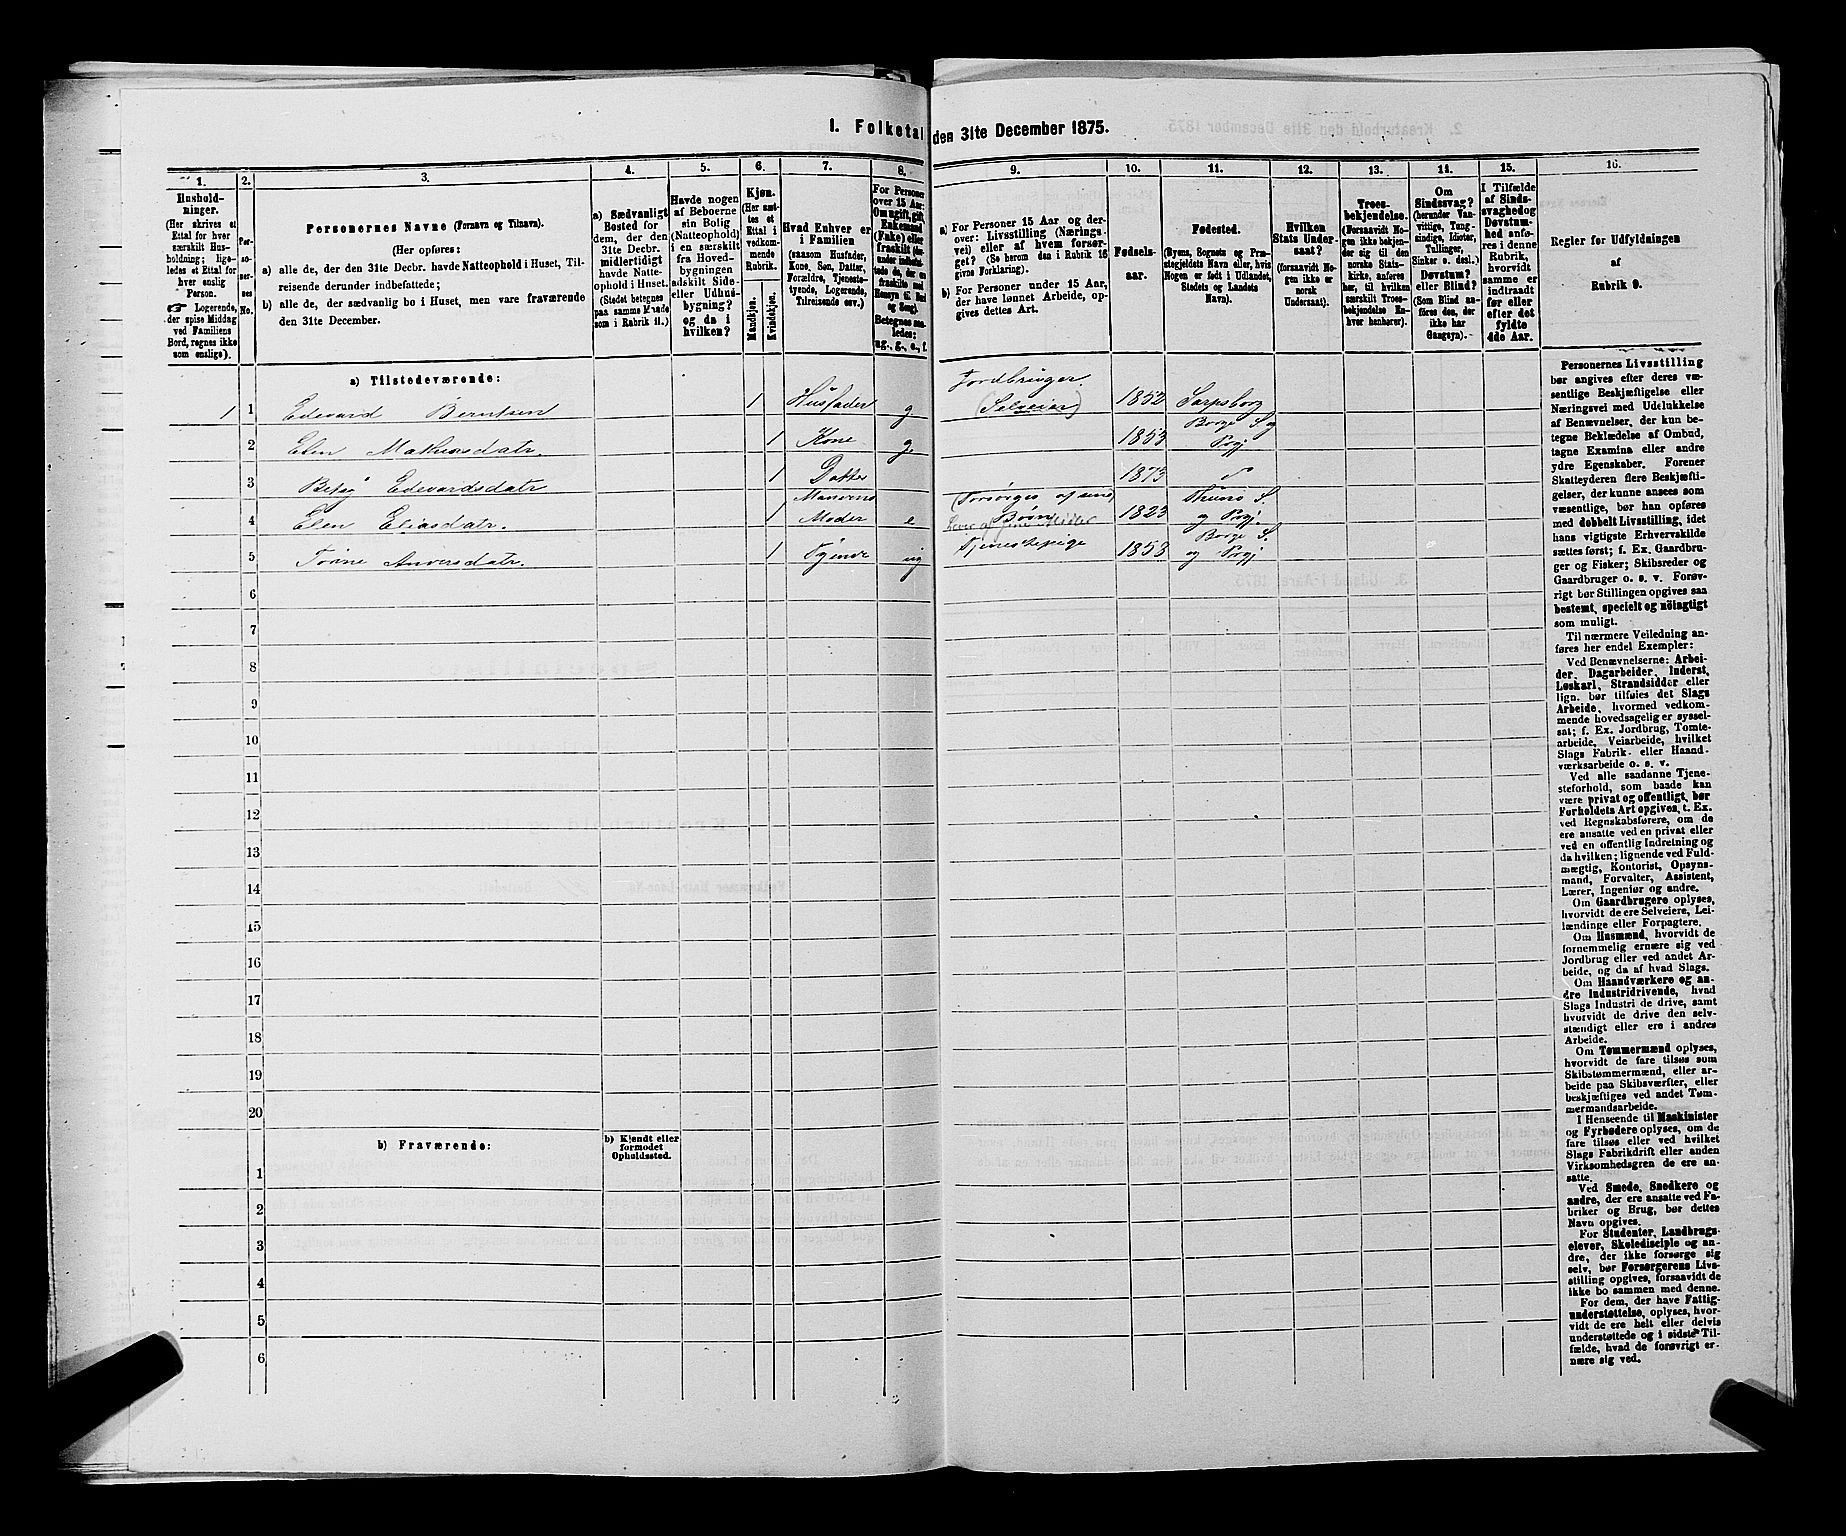 I. Folketal den 31te December 1875.
1. 2. 3. 4. 5. 6. 7. 8. 9. 10. 11. 12. 13. 14. 15. 16.
Husholdninger.
(Her skrives et
Ettal for hver
særskilt Husholdning;
ligeledes et Ettal for
hver enslig
Person.
Logerende,
der spise Middag
ved Familiens
Bord, regnes ikke
som enslige).
Personernes No.
Personernes Navne (Fornavn og Tilnavn).
(Her opføres:
a) alle de, der den 31te Decbr. havde Natteophold i Huset, Tilreisende
derunder indbefattede;
b) alle de, der sædvanlig bo i Huset, men vare fraværende
den 31te December.
a) Sædvanligt
Bosted for
dem, der den
31te Decbr.
midlertidigt
havde Natteophold
i Huset.
(Stedet betegnes
paa samme Maade
som i Rubrik 11.)
Havde nogen
af Beboerne
sin Bolig
(Natteophold)
i en særskilt
fra Hovedbygningen
adskilt Side-
eller Udhusbygning?
og da i
hvilken?
Kjøn.
(Her sættes
et
Ettal i
vedkommende
Rubrik.
Mandkjøn.
Kvindekjøn.
Hvad Enhver er
i Familien
(saasom Husfader,
Kone, Søn, Datter,
Forældre, Tjenestetyende,
Logerende,
Tilreisende osv.)
For Personer
over 15 Aar:
Om ugift, gift,
Enkemand
(Enke) eller
fraskilt
Betegnes saaledes:
ug., g., e., f.
a) For Personer 15 Aar og derover:
Livsstilling (Næringsvei)
eller af hvem forsørget?
(Se herom den i Rubrik 16
givne Forklaring).
b) For Personer under 15 Aar,
der have lønnet Arbeide, opgives
dettes Art.
Fødselsaar.
Fødested.
(Byens, Sognets og Præstegjeldets
Navn eller, hvis
Nogen er født i Udlandet,
Stedets og Landets
Navn).
Hvilken
Stats Undersaat?
(forsaavidt Nogen
ikke er
norsk
Undersaat).
Troesbekjendelse.
(Forsaavidt Nogen
ikke bekjender
sig til den
norske Statskirke,
anføres
her, til hvilken
særskilt Troesbekjendelse
Enhver
henhører).
Om
Sindssvag?
(herunder Vanvittige,
Tungsindige,
Idioter,
Tullinger,
Sinker o. desl.)
Døvstum?
eller Blind?
(Som Blind anføres
den, der
ikke har
Gangsyn).
I Tilfælde
af Sindssvaghed
og
Døvstumhed
anføres
i denne
Rubrik,
hvorvidt
samme er
indtraadt
før eller
efter det
fyldte
4de Aar.
Regler for Udfyldningen
af
Rubrik 9.
a) Tilstedeværende:
1 1 Edevard Berntsen 1 Husfader g Jordbruger (Selveier) 1852 Sarpsborg
2 Elen Mathiasdatr 1 Kone g 1853 Borge S. og Prgj
3 Edevardsdatr 1 Datter 1873
4 Elen Eliasdatr. 1 Mandens Moder e (Forsørges af sine Børn 1823 S. og Prgj.
5 1 ug Tjenestepige 1853 Borge S. og Prgj
6
7
8
9
10
11
12
13
14
15
16
17
18
19
20
b) Fraværende:
b) Kjendt eller
formodet
Opholdssted.
1
2
3
4
5
6
Personernes Livsstilling
bør angives efter deres væsentlige
Beskjæftigelse eller
Næringsvei med Udelukkelse
af Benævnelser, der kun betegne
Beklædelse af Ombud,
tagne Examina eller andre
ydre Egenskaber. Forener
Skatteyderen flere Beskjæftigelser,
der kunne ansees som
væsentlige, bør han opføres
med dobbelt Livsstilling, idet
hans vigtigste Erhvervskilde
sættes først; f. Ex. Gaardbruger
og Fisker; Skibsreder og
Gaardbruger o. s. v. Forøvrigt
bør Stillingen opgives saa
bestemt, specielt og nöiagtigt
som muligt.
Til nærmere Veiledning anføres
her endel Exempler:
Ved Benævnelserne: Arbeider,
Dagarbeider, Inderst,
Løskarl, Strandsidder eller
lign. bør tilføies det Slags
Arbeide, hvormed vedkommende
hovedsagelig er sysselsat;
f. Ex. Jordbrug, Tomtearbeide,
Veiarbeide, hvilket
Slags Fabrik- eller Haandværksarbeide
o. s. v.
Ved alle saadanne Tjenesteforhold,
som baade kan
være privat og offentligt, bør
Forholdets Art opgives, t. Ex.
ved Regnskabsførere, om de
ere ansatte ved en privat eller
ved en offentlig Indretning og
da hvilken; lignende ved Fuldmægtig,
Kontorist, Opsynsmand,
Forvalter, Assistent,
Lærer, Ingeniør og andre.
Om Gaardbrugere oplyses,
hvorvidt de ere Selveiere, Leilændinge
eller Forpagtere.
Om Husmænd, hvorvidt de
fornemmelig ernære sig ved
Jordbrug eller ved andet Arbeide,
og da af hvad Slags.
Om Haandværkere og andre
Industridrivende, hvad
Slags Industri de drive, samt
hvorvidt de drive den selvstændigt
eller ere i andres
Arbeide.
Om Tømmermænd oplyses,
hvorvidt de fare tilsøs som
Skibstømmermænd, eller arbeide
paa Skibsværfter, eller
beskjæftiges ved andet Tømmermandsarbeide.
I Henseende til Maskinister
og Fyrbødere oplyses, om de
fare tilsøs eller ved hvilket
Slags Fabrikdrift eller anden
Virksomhedsgren de ere ansatte.
Ved Smede, Snedkere og
andre, der ere ansatte ved Fabriker
og Brug, bør dettes
Navn opgives.
For Studenter, Landbrugselever,
Skoledisciple og andre,
der ikke forsørge sig
selv, bør Forsørgerens Livsstilling
opgives, forsaavidt de
ikke bo sammen med denne.
For dem, der have Fattigunderstøttelse,
oplyses, hvorvidt
de ere helt eller delvis
understøttede og i sidste Tilfælde,
hvad de forøvrigt ernære
sig ved.